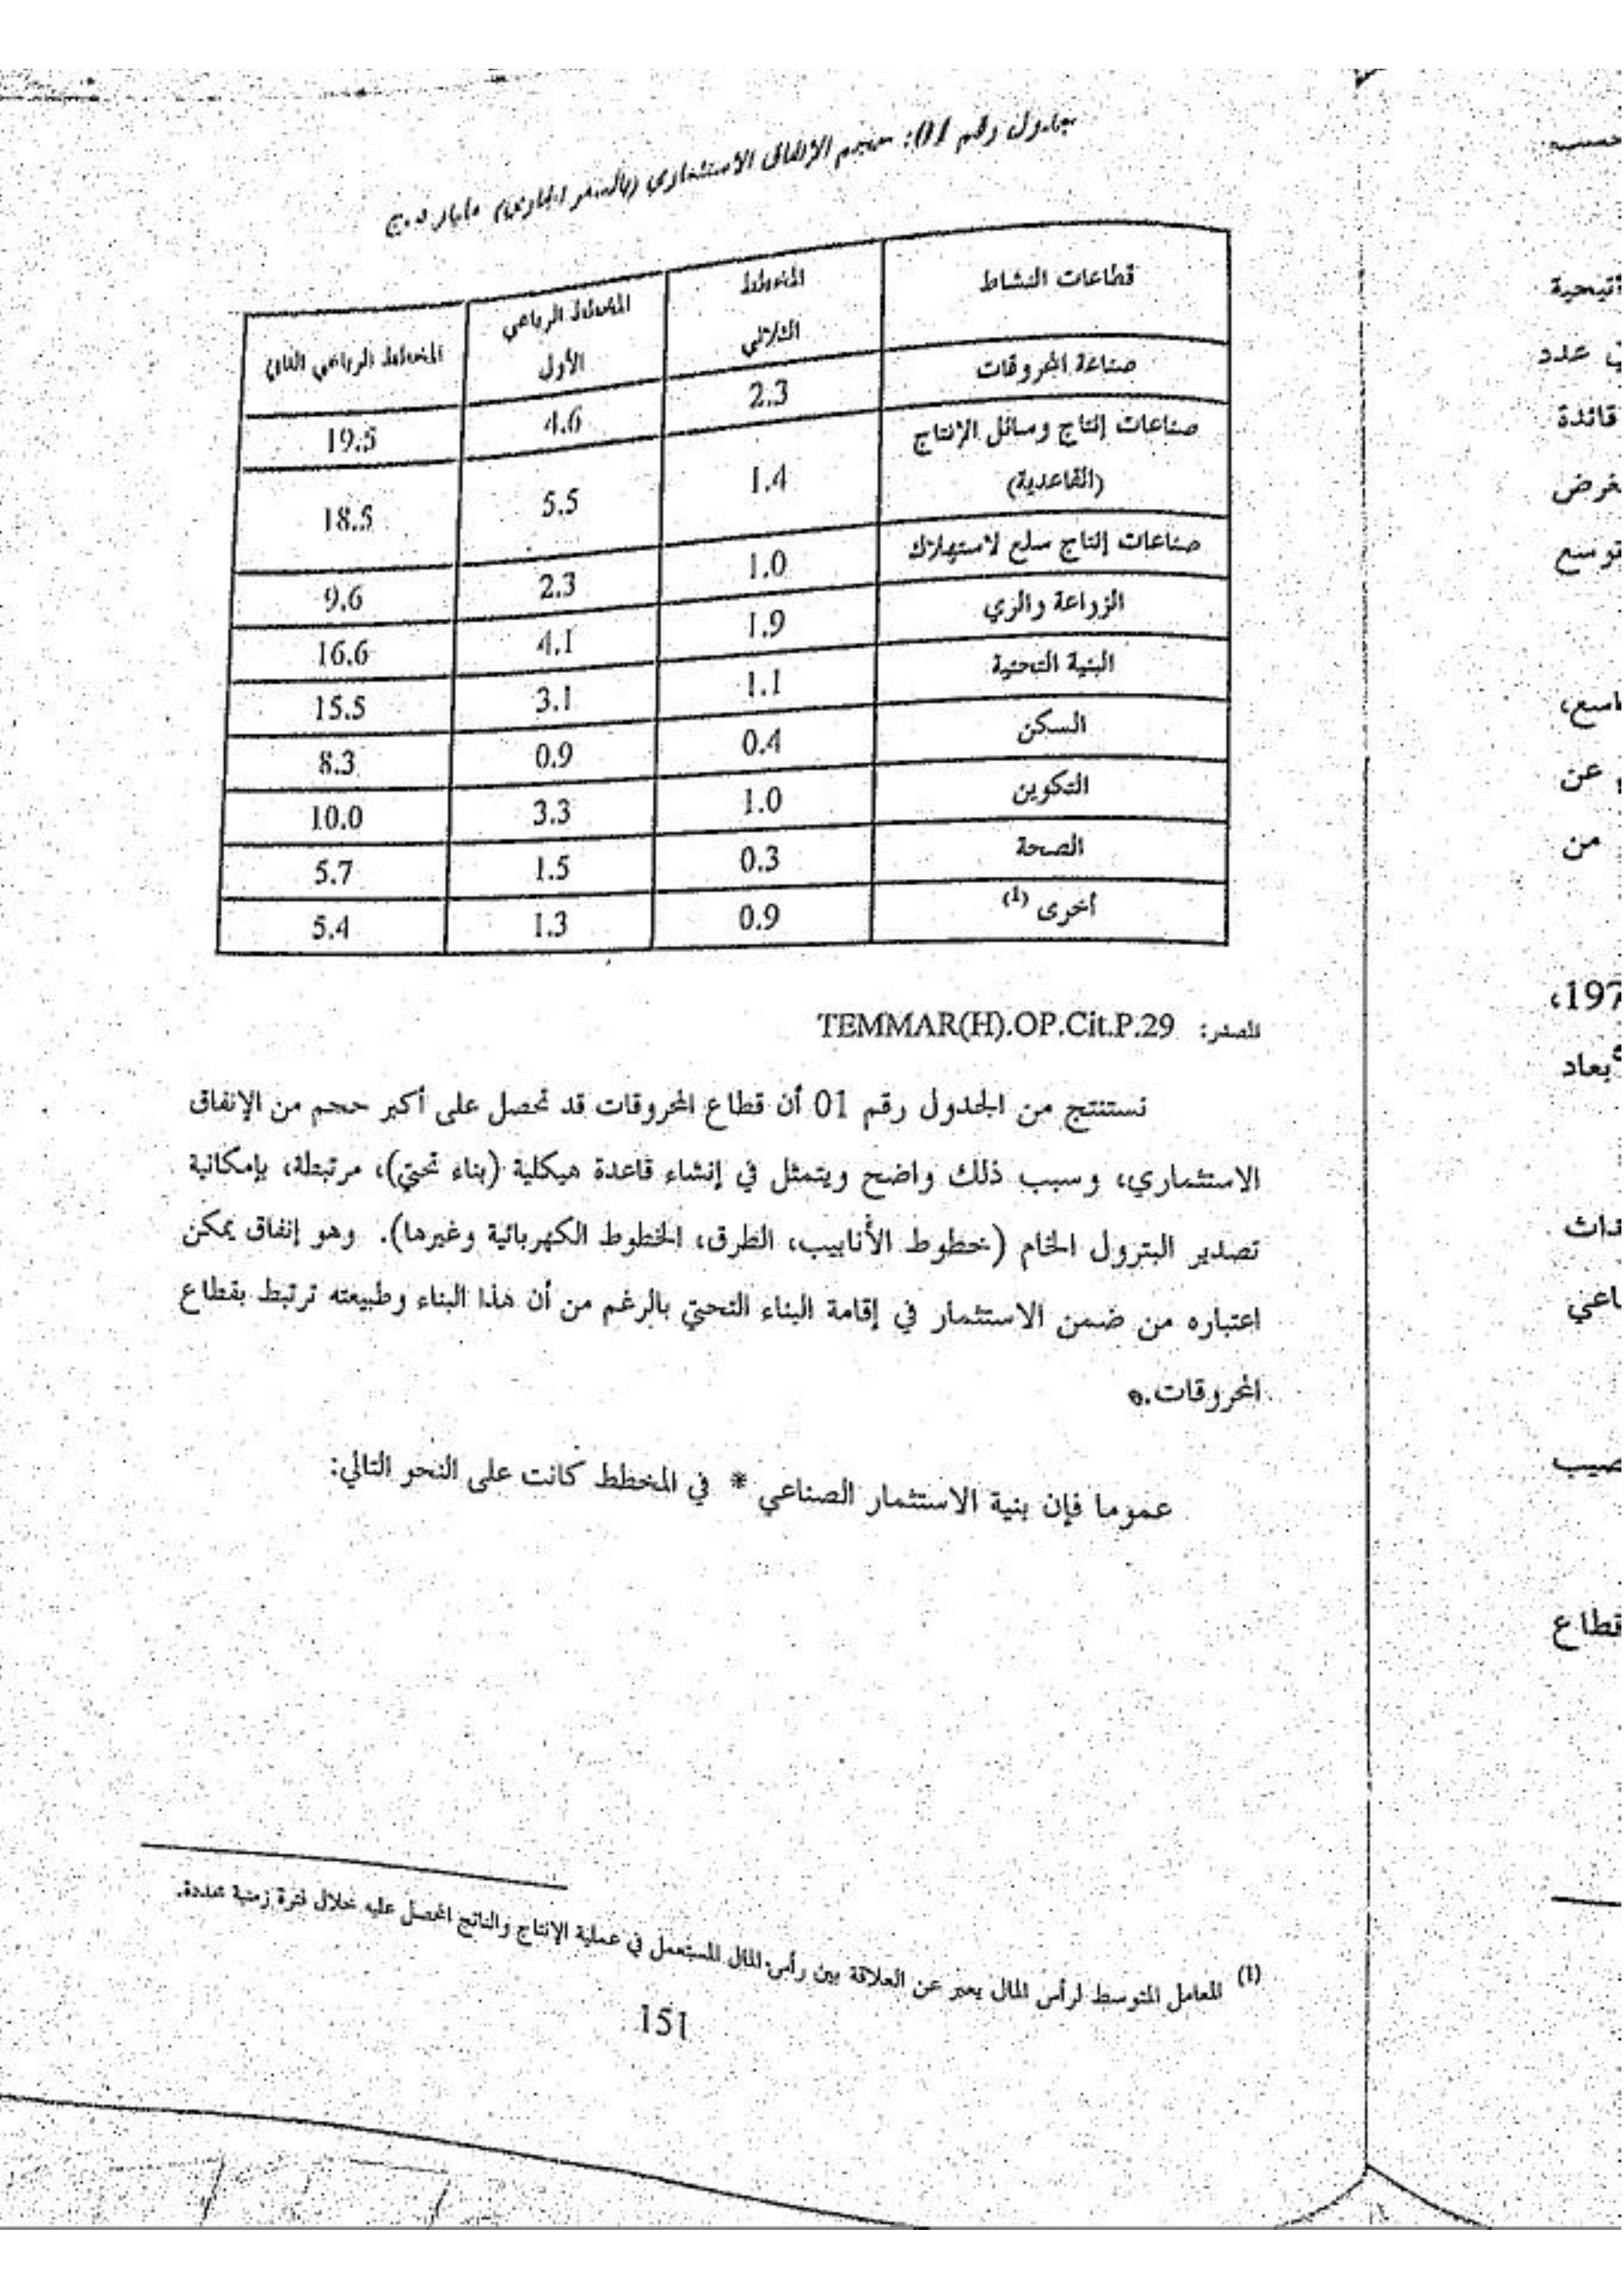 جدول رقم 01: حجم الإنفاق الاستثماري (بالسعر الجاري) مليار د.ج
قطاعات النشاط | المخطط الثلاثي | المخطط الرباعي الأول | المخطط الرباعي الثاني
صناعة المحروقات | 2.3 | 4.6 | 19.5
صناعات إنتاج وسائل الإنتاج (القاعدية) | 1.4 | 5.5 | 18.5
صناعات إنتاج سلع لاستهلاك | 1.0 | 2.3 | 9.6
الزراعة والري | 1.9 | 4.1 | 16.6
البنية التحتية | 1.1 | 3.1 | 15.5
السكن | 0.4 | 0.9 | 8.3
التكوين | 1.0 | 3.3 | 10.0
الصحة | 0.3 | 1.5 | 5.7
أخرى (1) | 0.9 | 1.3 | 5.4
المصدر: TEMMAR(H).OP.Cit.P.29
نستنتج من الجدول رقم 01 أن قطاع المحروقات قد تحصل على أكبر حجم من الإنفاق
الاستثماري، وسبب ذلك واضح ويتمثل في إنشاء قاعدة هيكلية (بناء تحتي)، مرتبطة، بإمكانية
تصدير البترول الخام (خطوط الأنابيب، الطرق، الخطوط الكهربائية وغيرها). وهو إنفاق يمكن
اعتباره من ضمن الاستثمار في إقامة البناء التحتي بالرغم من أن هذا البناء وطبيعته ترتبط بقطاع
المحروقات.
عموما فإن بنية الاستثمار الصناعي * في المخطط كانت على النحو التالي:
(1) المعامل المتوسط لرأس المال يعبر عن العلاقة بين رأس المال المستعمل في عملية الإنتاج والناتج المحصل عليه خلال فترة زمنية محددة.
151
عدد
قائدة
توسع
عن
من
197،
قطاع